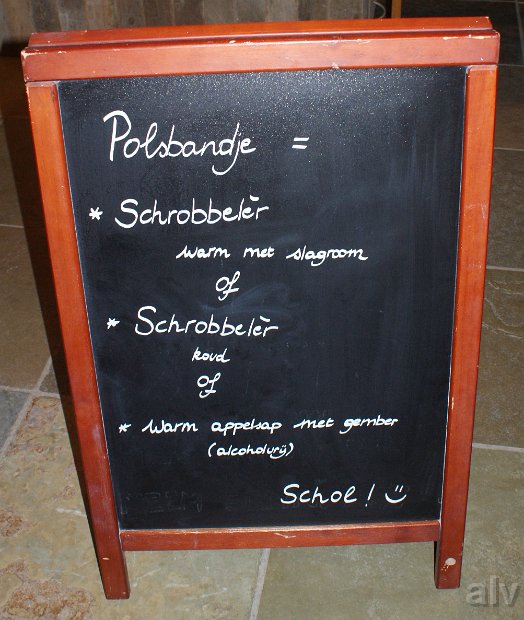 Polsbandje =
* Schrobbelèr
warm met slagroom
of
* Schrobbelèr
koud
of
* Warm appelsap met gember
(alcoholvrij)
Schol! :)
alv